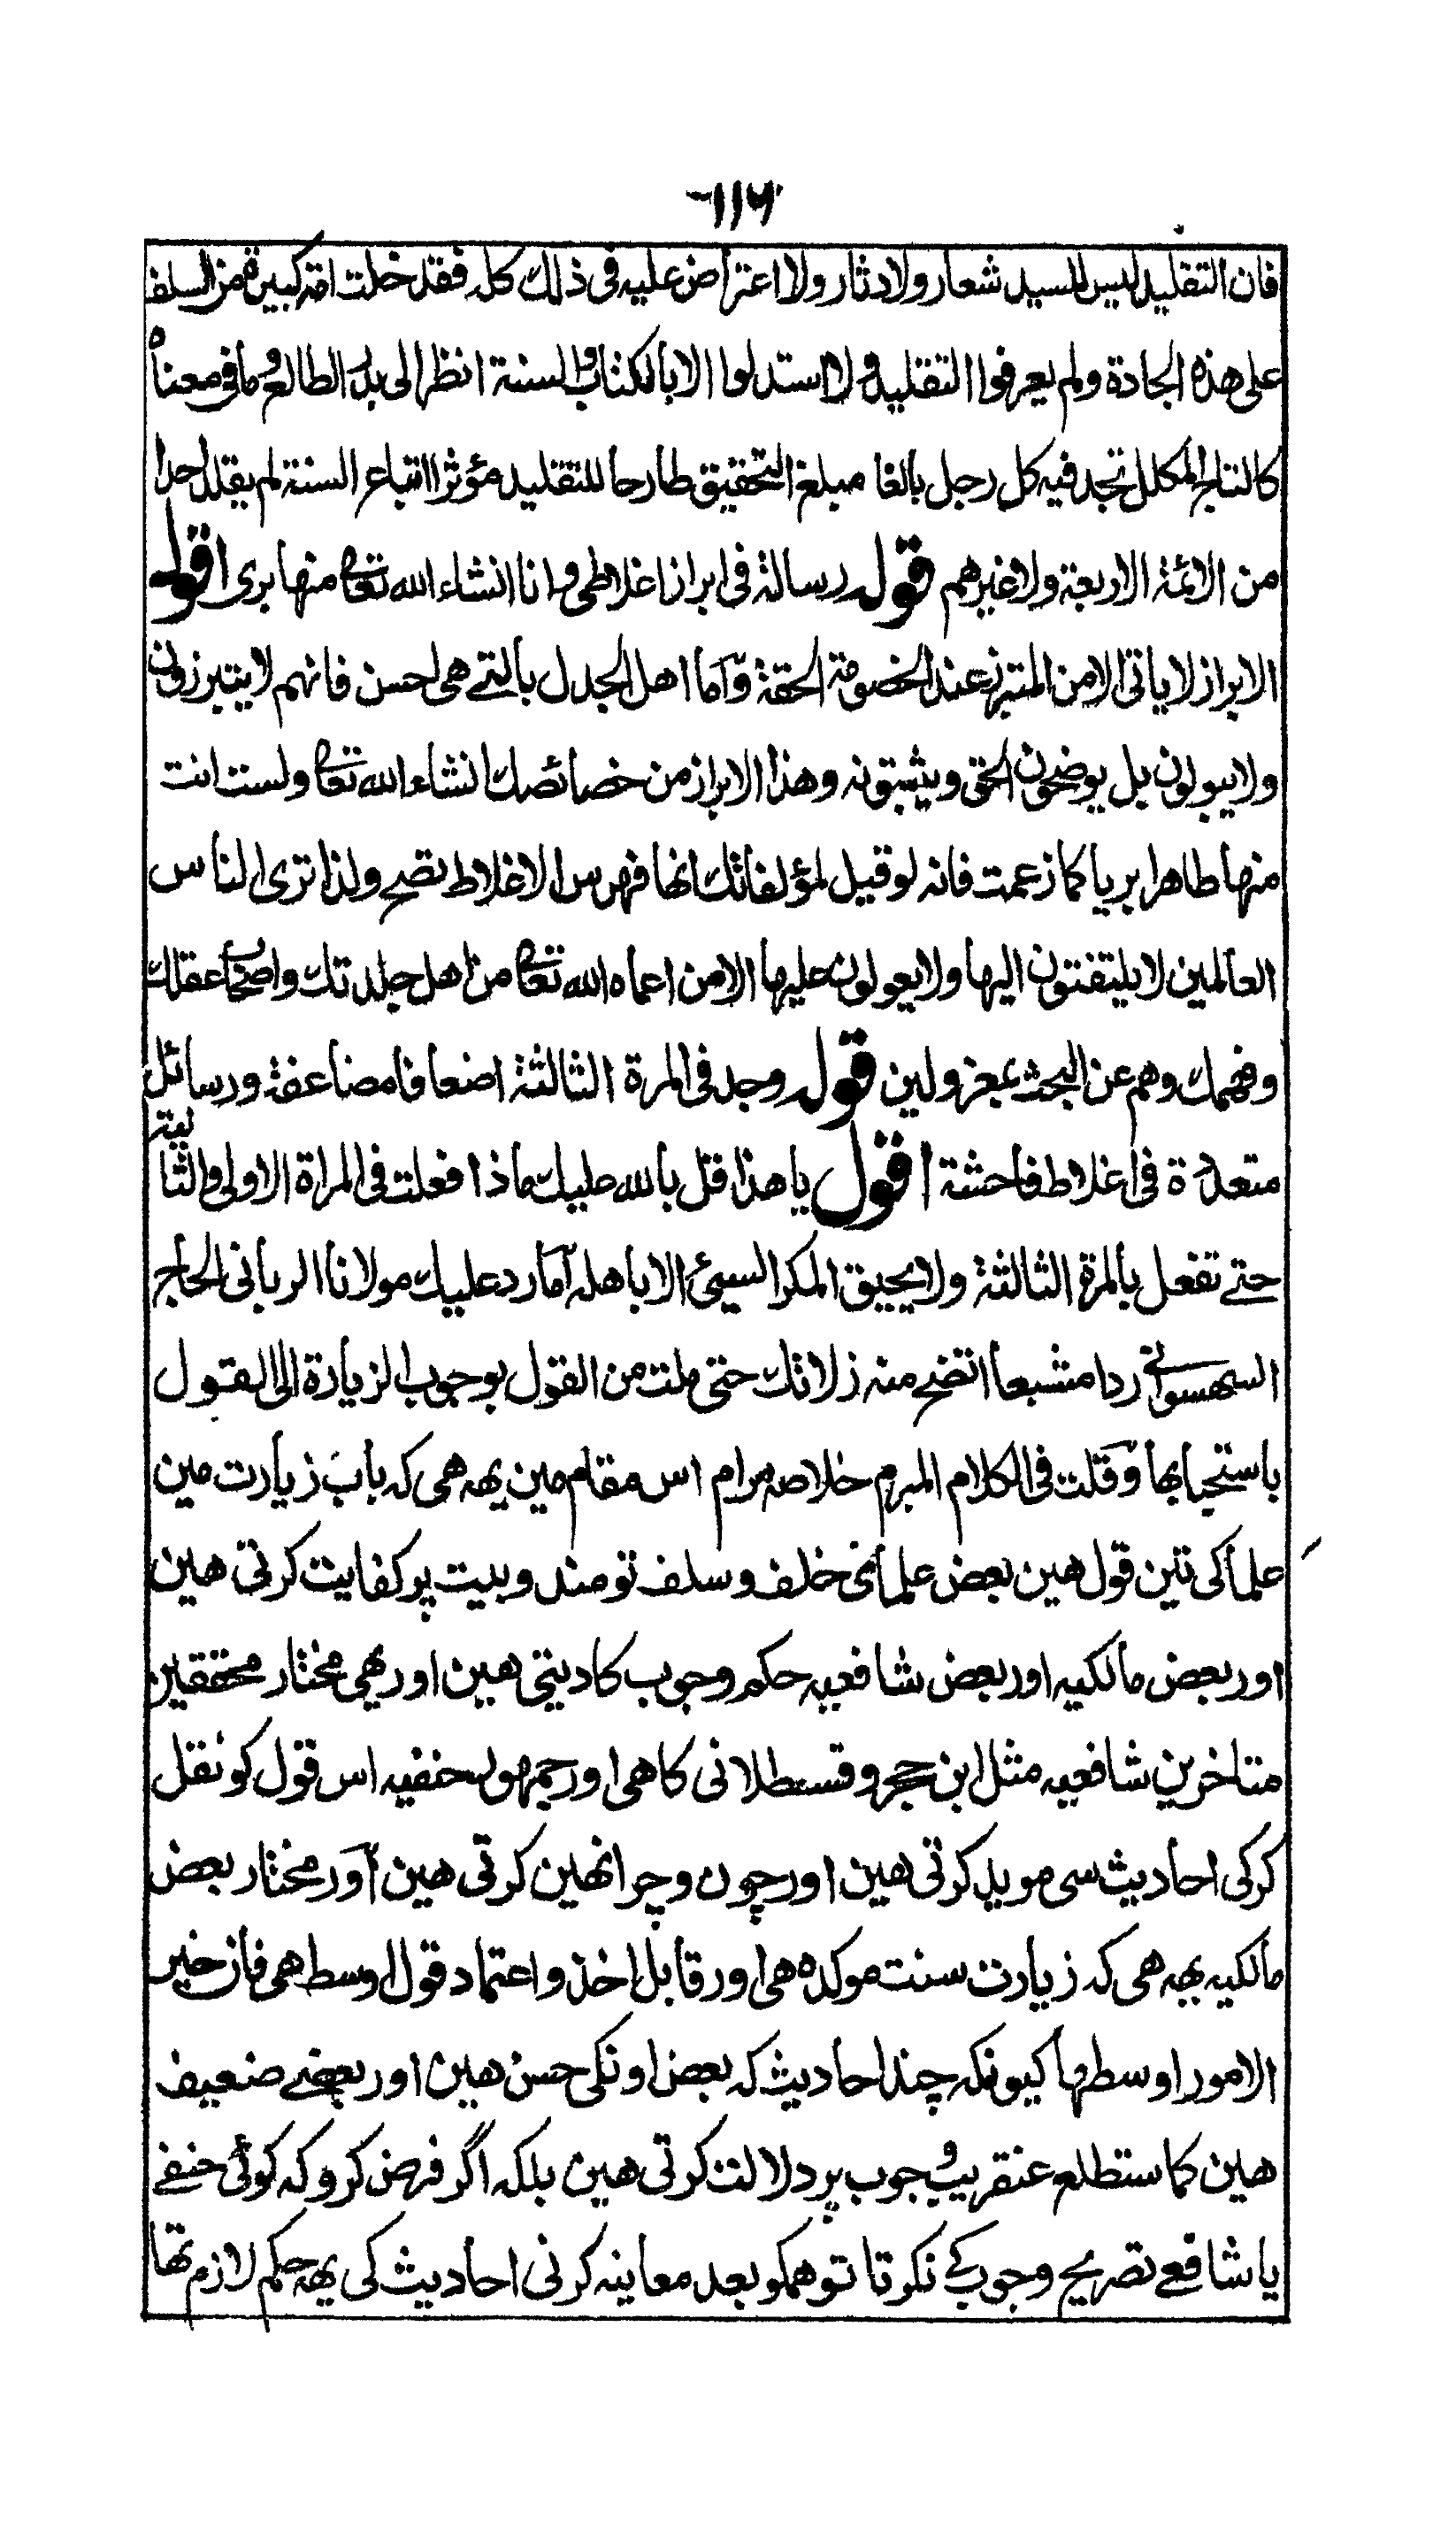 ١١٦
فان التقليد ليس للسيد شعار ولا دثار ولا اعتراض عليه فى ذلك كله فقد خلت امة كبيرة من السلف
على هذه الجادة ولم يعرفوا التقليد ولا استدلوا الا بالكتاب والسنة انظر الى بدر الطالع وما فى معناه
كالتاج المكلل تجد فيه كل رجل بالغا مبلغ التحقيق طارحا للتقليد مؤثرا اتباع السنة لم يقلد احدا
من الائمة الاربعة ولا غيرهم قوله رسالة فى ابراز اغلاطى وانا انشاء الله تعالى منها برى اقول
الابراز لا ياتى الا من المتبرز عند الخصومة الحقة وآما اهل الجدل بالتے هى احسن فانهم لا يتبرزون
ولا يبولون بل يوضحون الحق ويثبتونه وهذا الابراز من خصائصك انشاء الله تعالى ولست انت
منها طاهرا بريا كما زعمت فانه لو قيل لمؤلفاتك انها فهرس الاغلاط تصح ولذا ترى الناس
العالمين لا يلتفتون اليها ولا يعولون عليها الا من اعماه الله تعالى من اهل جلدتك واصحاب عقلك
وفهمك وهم عن البحث بمعزولين قوله وجد فى المرة الثالثة اضعافا مضاعفة ورسائل
متعددة فى اغلاط فاحشة اقول يا هذا قل بالله عليك ماذا فعلت فى المراة الاولى والثانية
حتے تفعل بالمرة الثالثة ولا يحيق المكر السيئ الا باهله آما رد عليك مولانا الربانى الحاج
السهسوانے ردا مشبعا اتضح منه زلاتك حتى ملت من القول بوجوب الزيارة الى القول
باستحبابها وقلت فى الكلام المبرم خلاصه مرام اس مقام مين يهه هى كه باب زيارت مين
علما كى تين قول هين بعض علمائى خلف وسلف تو مندوبيت پر كفايت كرتى هين
اور بعض مالكيه اور بعض شافعيه حكم وجوب كا ديتى هين اور يهى مختار محققين
متاخرين شافعيه مثل ابن حجر وقسطلانى كا هى اور جمهور حنفيه اس قول كو نقل
كركى احاديث سى مويد كرتى هين اور چون وچرا نهين كرتى هين آور مختار بعض
مالكيه يهه هى كه زيارت سنت موكده هى اور قابل اخذ واعتماد قول اوسط هى فان خير
الامور اوسطها كيونكه چند احاديث كه بعض اونكى حسن هين اور بعضے ضعيف
هين كما ستطلع عنقريب وجوب پر دلالت كرتى هين بلكه اگر فرض كرو كه كوئى حنفے
يا شافعے تصريح وجوب كے نكرتا تو همكو بعد معاينه كرنى احاديث كى يهه حكم لازم تها